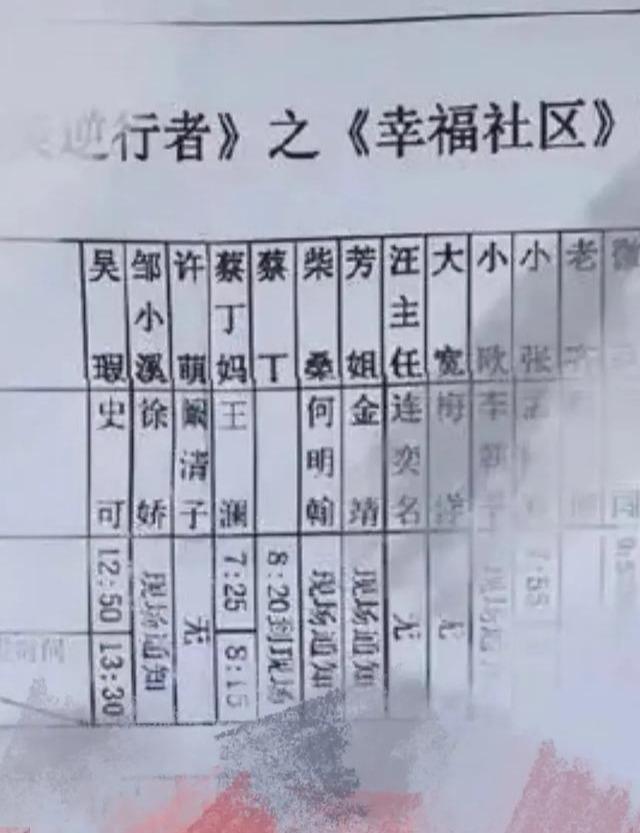 逆行者》之《幸福社区》
吴瑕 邹小溪 许萌 蔡丁妈 蔡丁 柴桑 芳姐 汪主任 大宽 小欧 小张 老
史可 徐娇 阚清子 王澜 何明翰 金靖 连奕名 梅洋
12:50 现场通知 无 7:25 8:20到现场 现场通知 现场通知 无 无 现场通 7:55
13:30 8:15
时间